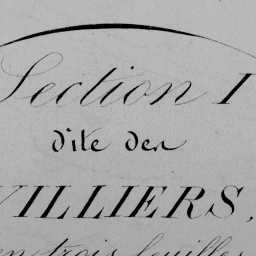 Section I
dite des
VILLIERS,
en trois feuilles